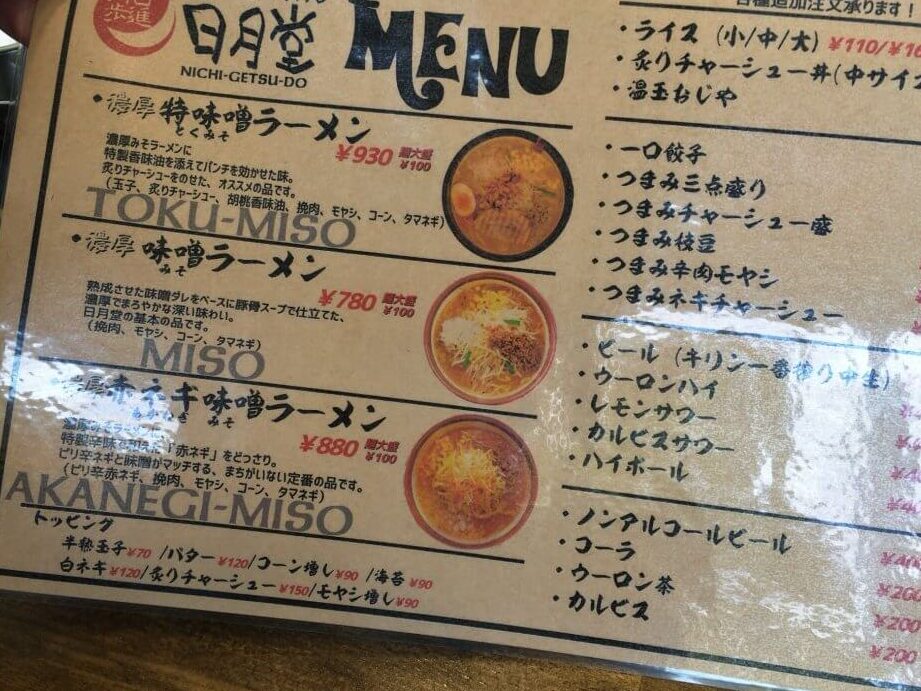 日進
歩
日月堂
NICHI-GETSU-DO
MENU
・濃厚 特味噌ラーメン
とくみそ
¥930 麺大盛 ¥100
濃厚みそラーメンに
特製香味油を添えてパンチを効かせた味。
炙りチャーシューをのせた、オススメの品です。
(玉子、炙りチャーシュー、胡桃香味油、挽肉、モヤシ、コーン、タマネギ)
TOKU-MISO
・濃厚 味噌ラーメン
みそ
¥780 麺大盛 ¥100
熟成させた味噌ダレをベースに豚骨スープで仕立てた、
濃厚でまろやかな深い味わい。
日月堂の基本の品です。
(挽肉、モヤシ、コーン、タマネギ)
MISO
濃厚 赤ネギ味噌ラーメン
あかねぎ みそ
¥880 麺大盛 ¥100
濃厚みそラーメンに
特製辛味で和えた「赤ネギ」をどっさり。
ピリ辛ネギと味噌がマッチする、まちがいない定番の品です。
(ピリ辛赤ネギ、挽肉、モヤシ、コーン、タマネギ)
AKANEGI-MISO
トッピング
半熟玉子¥70 /バター¥120/コーン増し¥90 /海苔¥90
白ネギ¥120/炙りチャーシュー¥150/モヤシ増し¥90
各種追加注文承ります!
・ライス (小/中/大) ¥110/
・炙りチャーシュー丼(中サイ
・温玉おじや
・一口餃子
・つまみ三点盛り
・つまみチャーシュー盛
・つまみ枝豆
・つまみ辛肉モヤシ
・つまみネギチャーシュー
・ビール (キリン一番搾り中生)
・ウーロンハイ
・レモンサワー
・カルピスサワー
・ハイボール
・ノンアルコールビール
¥400
・コーラ
¥200
・ウーロン茶
¥200
・カルピス
¥200